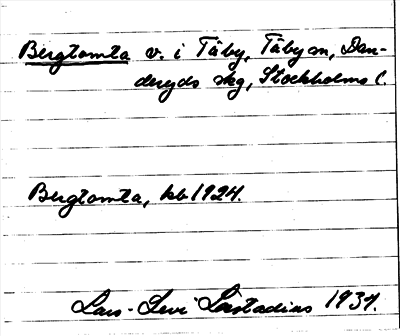 Bergtomta v. i Täby, Täby sn, Dan-
deryds skg, Stockholms l.
Bergtomta, kb 1924.
Lars-Levi Læstadius 1937.